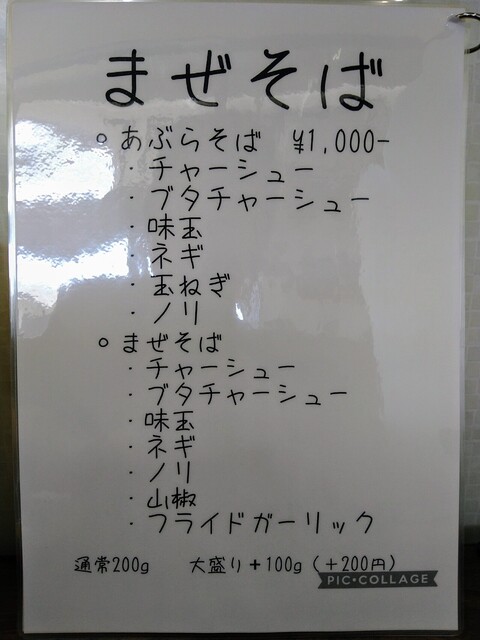 まぜそば
○ あぶらそば ¥1,000-
・チャーシュー
・ブタチャーシュー
・味玉
・ネギ
・玉ねぎ
・ノリ
○ まぜそば
・チャーシュー
・ブタチャーシュー
・味玉
・ネギ
・ノリ
・山椒
・フライドガーリック
通常200g 大盛り+100g (+200円)
PIC•COLLAGE